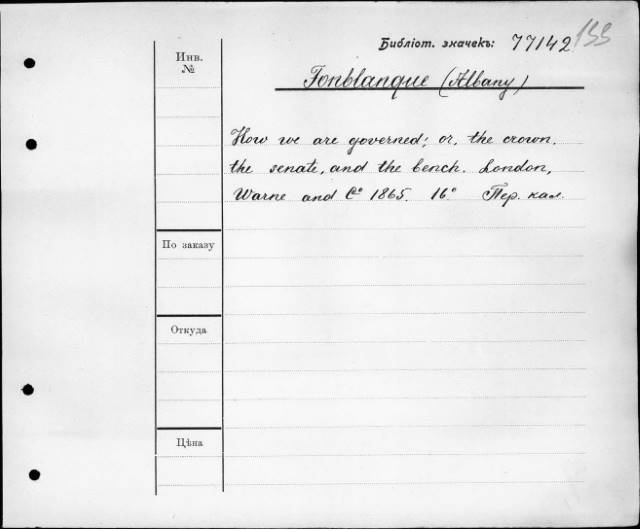 Библіот. значекъ: 77142
133
Инв.
№
Fonblanque (Albany)
How we are governed; or, the crown.
the senate, and the bench. London,
Warne and Cº 1865. 16.º Пер. кал.
По заказу
Откуда
Цѣна